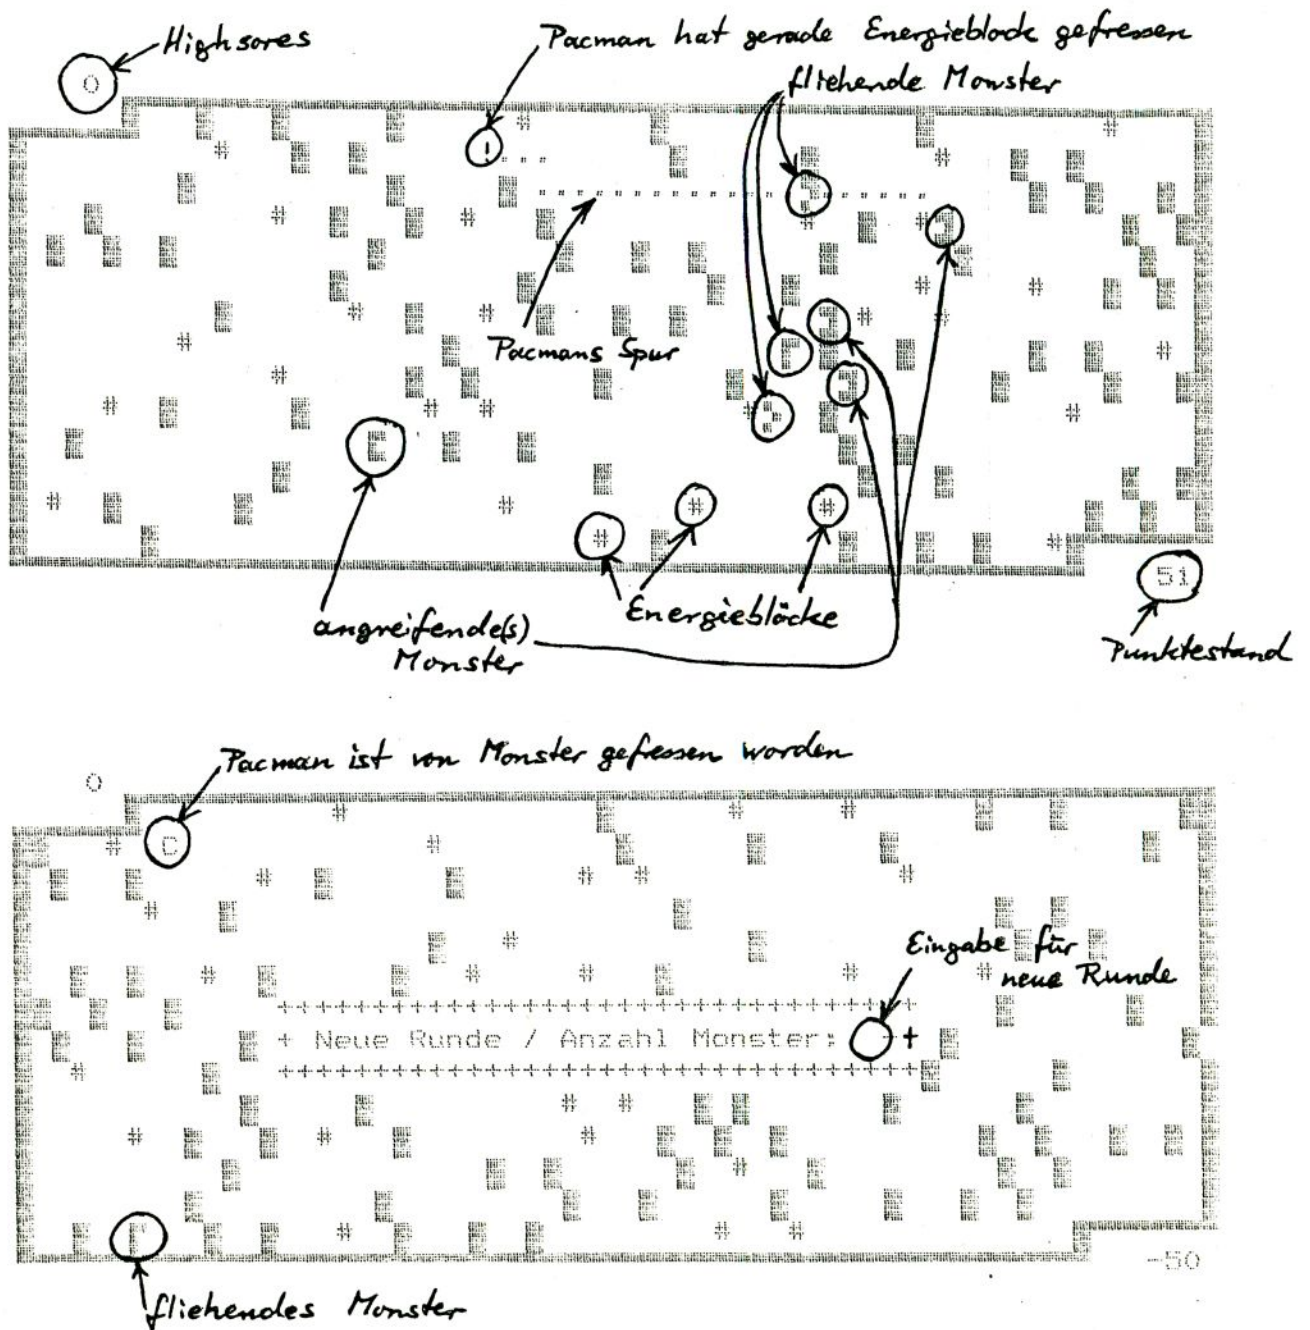 Highsores
Pacman hat gerade Energieblock gefressen
fliehende Monster
0
Pacmans Spur
angreifende(s)
Monster
Energieblöcke
51
Punktestand
Pacman ist von Monster gefressen worden
0
C
Eingabe für
neue Runde
+++++++++++++++++++++++++++++++++++
+ Neue Runde / Anzahl Monster: +
+++++++++++++++++++++++++++++++++++
-50
fliehendes Monster